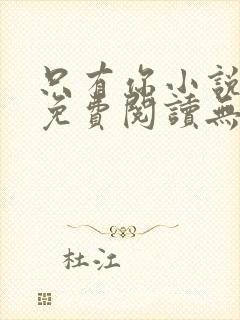 只有你小說
免費閱讀無
杜江